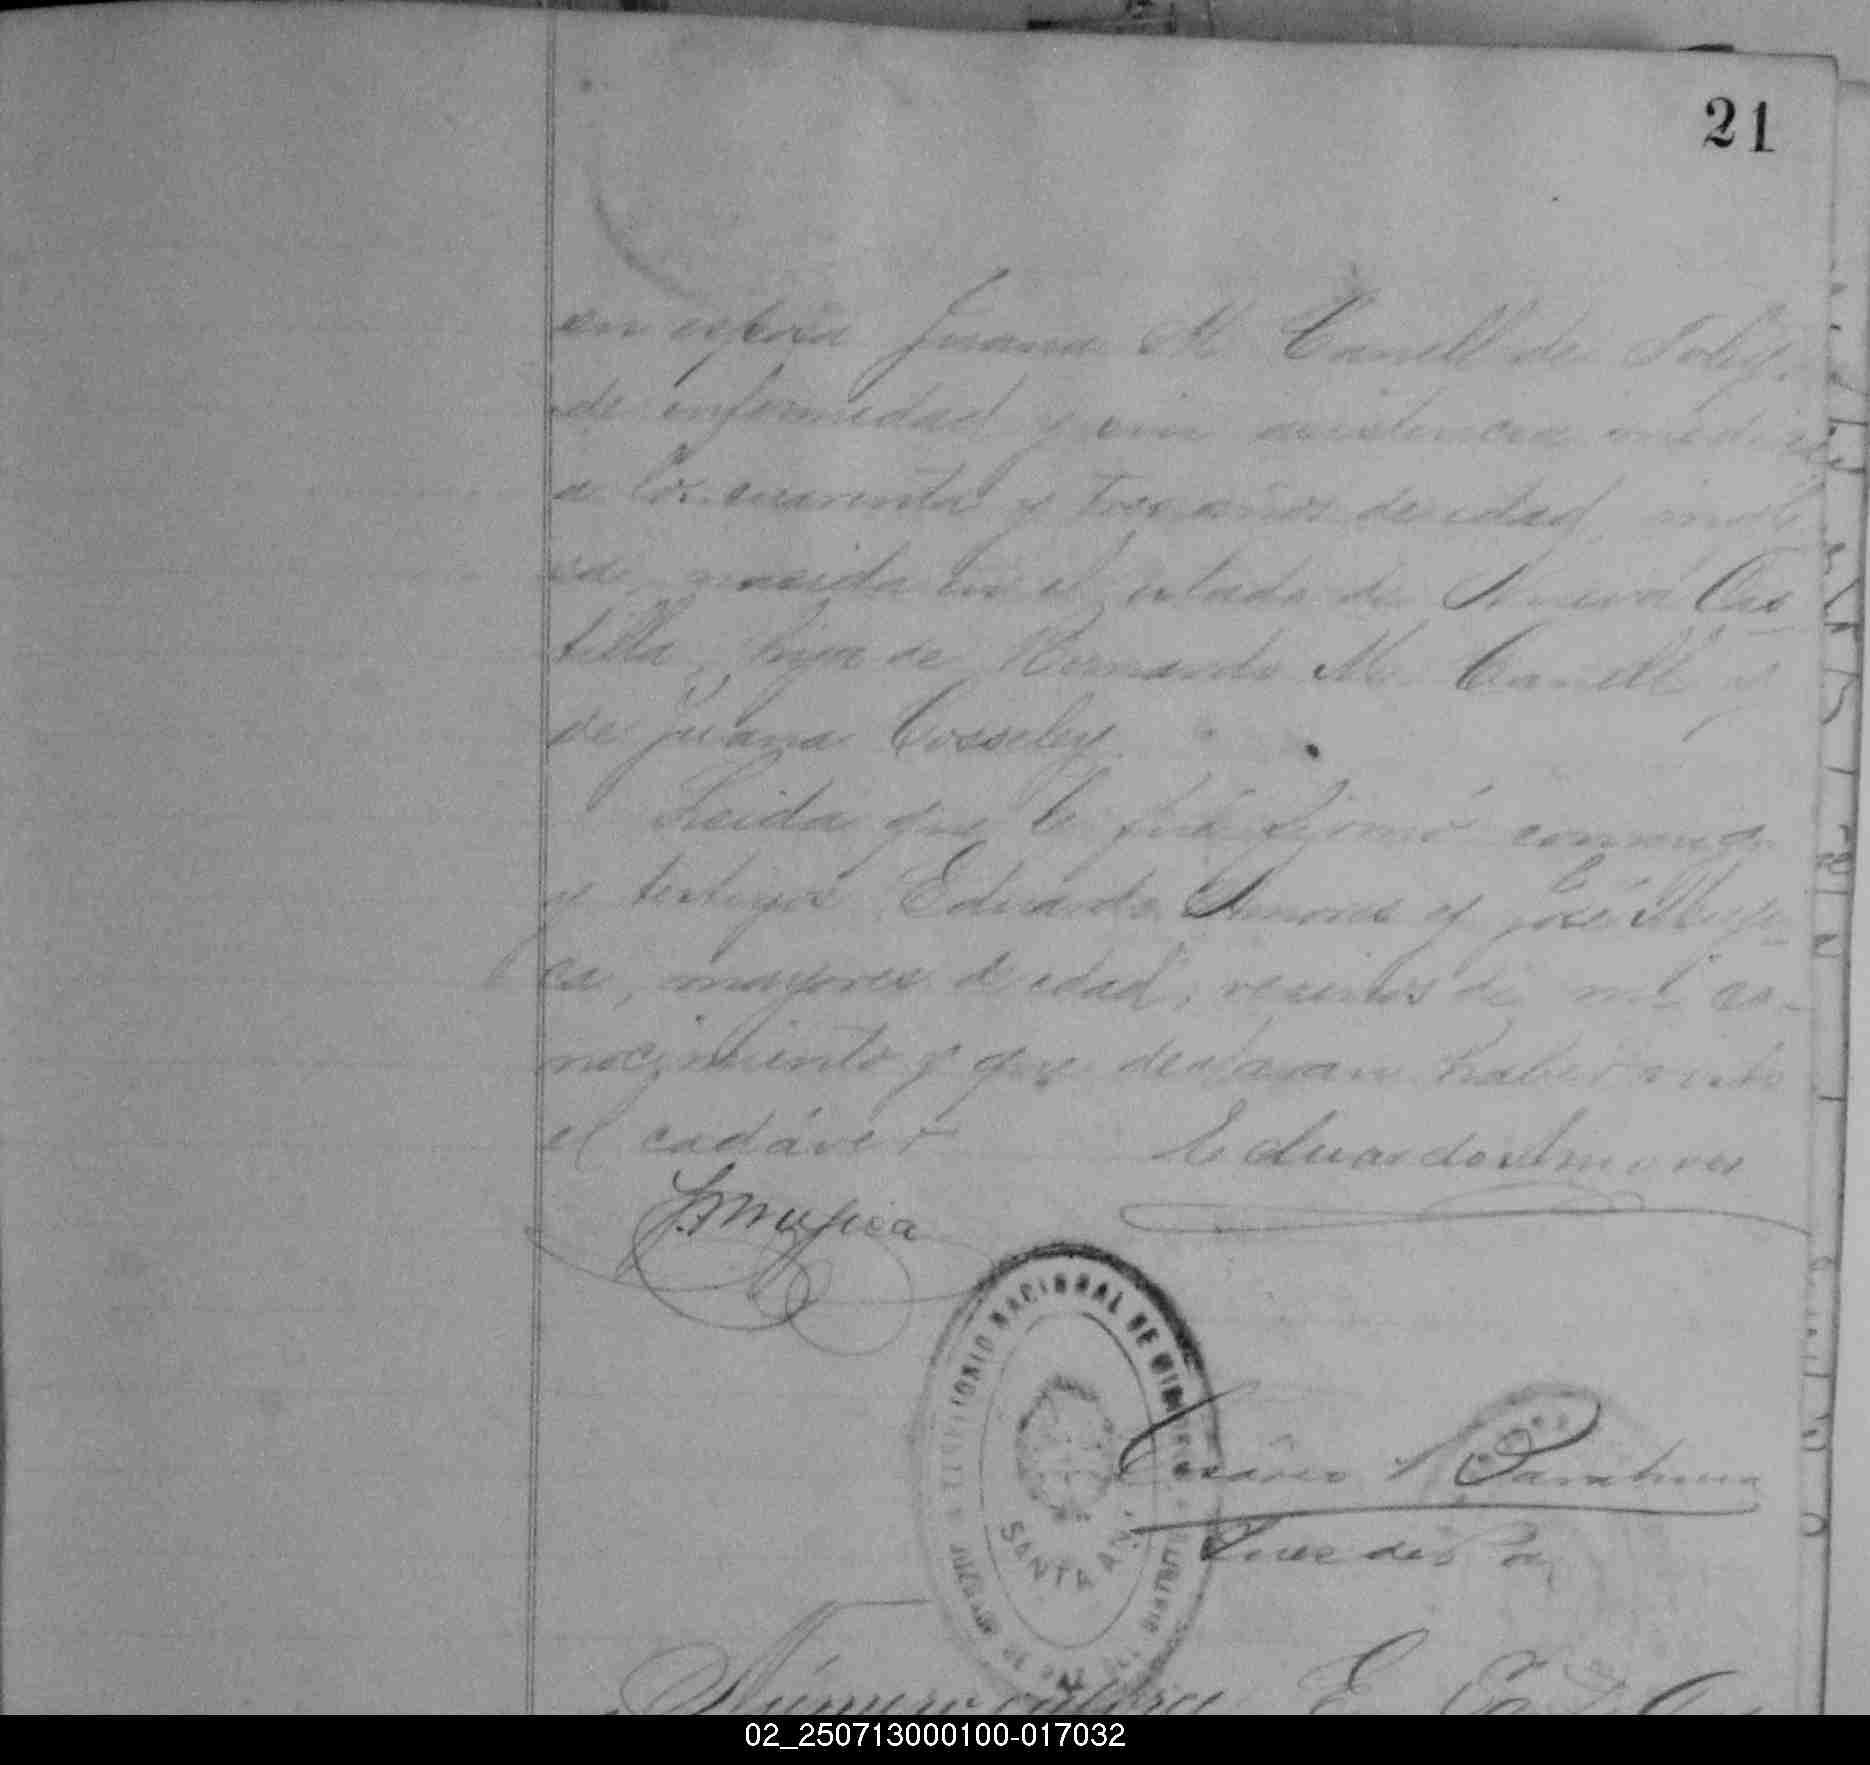 21
su esposa Juana M. Canell de Foley.
de enfermedad y sin asistencia médica
a los cuarenta y tres años de edad, ingle
sa, nacida en el estado de Nueva Cas
tilla, hija de Bernardo M. Canell y
de Juana Cosseley.
Leida que le fué firmó conmigo
y testigos Eduardo Amores y José Muji
ca, mayores de edad, vecinos de mi co-
nocimiento y que declaran haber visto
el cadáver
Eduardo Amores
J. Mujica
TERRITORIO NACIONAL DE MISIONES
JUZGADO DE PAZ
SANTA ANA
Juez de Paz
Número catorce
02_250713000100-017032